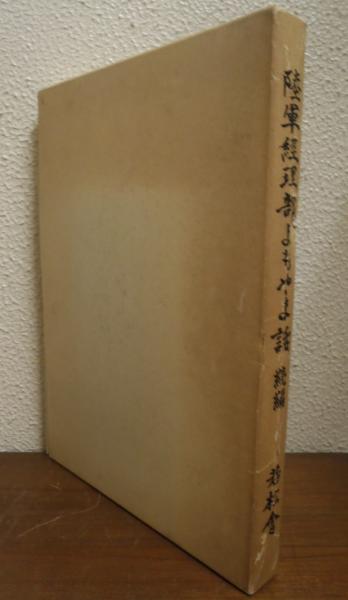 陸軍經理部よもやま話 続編 若松會